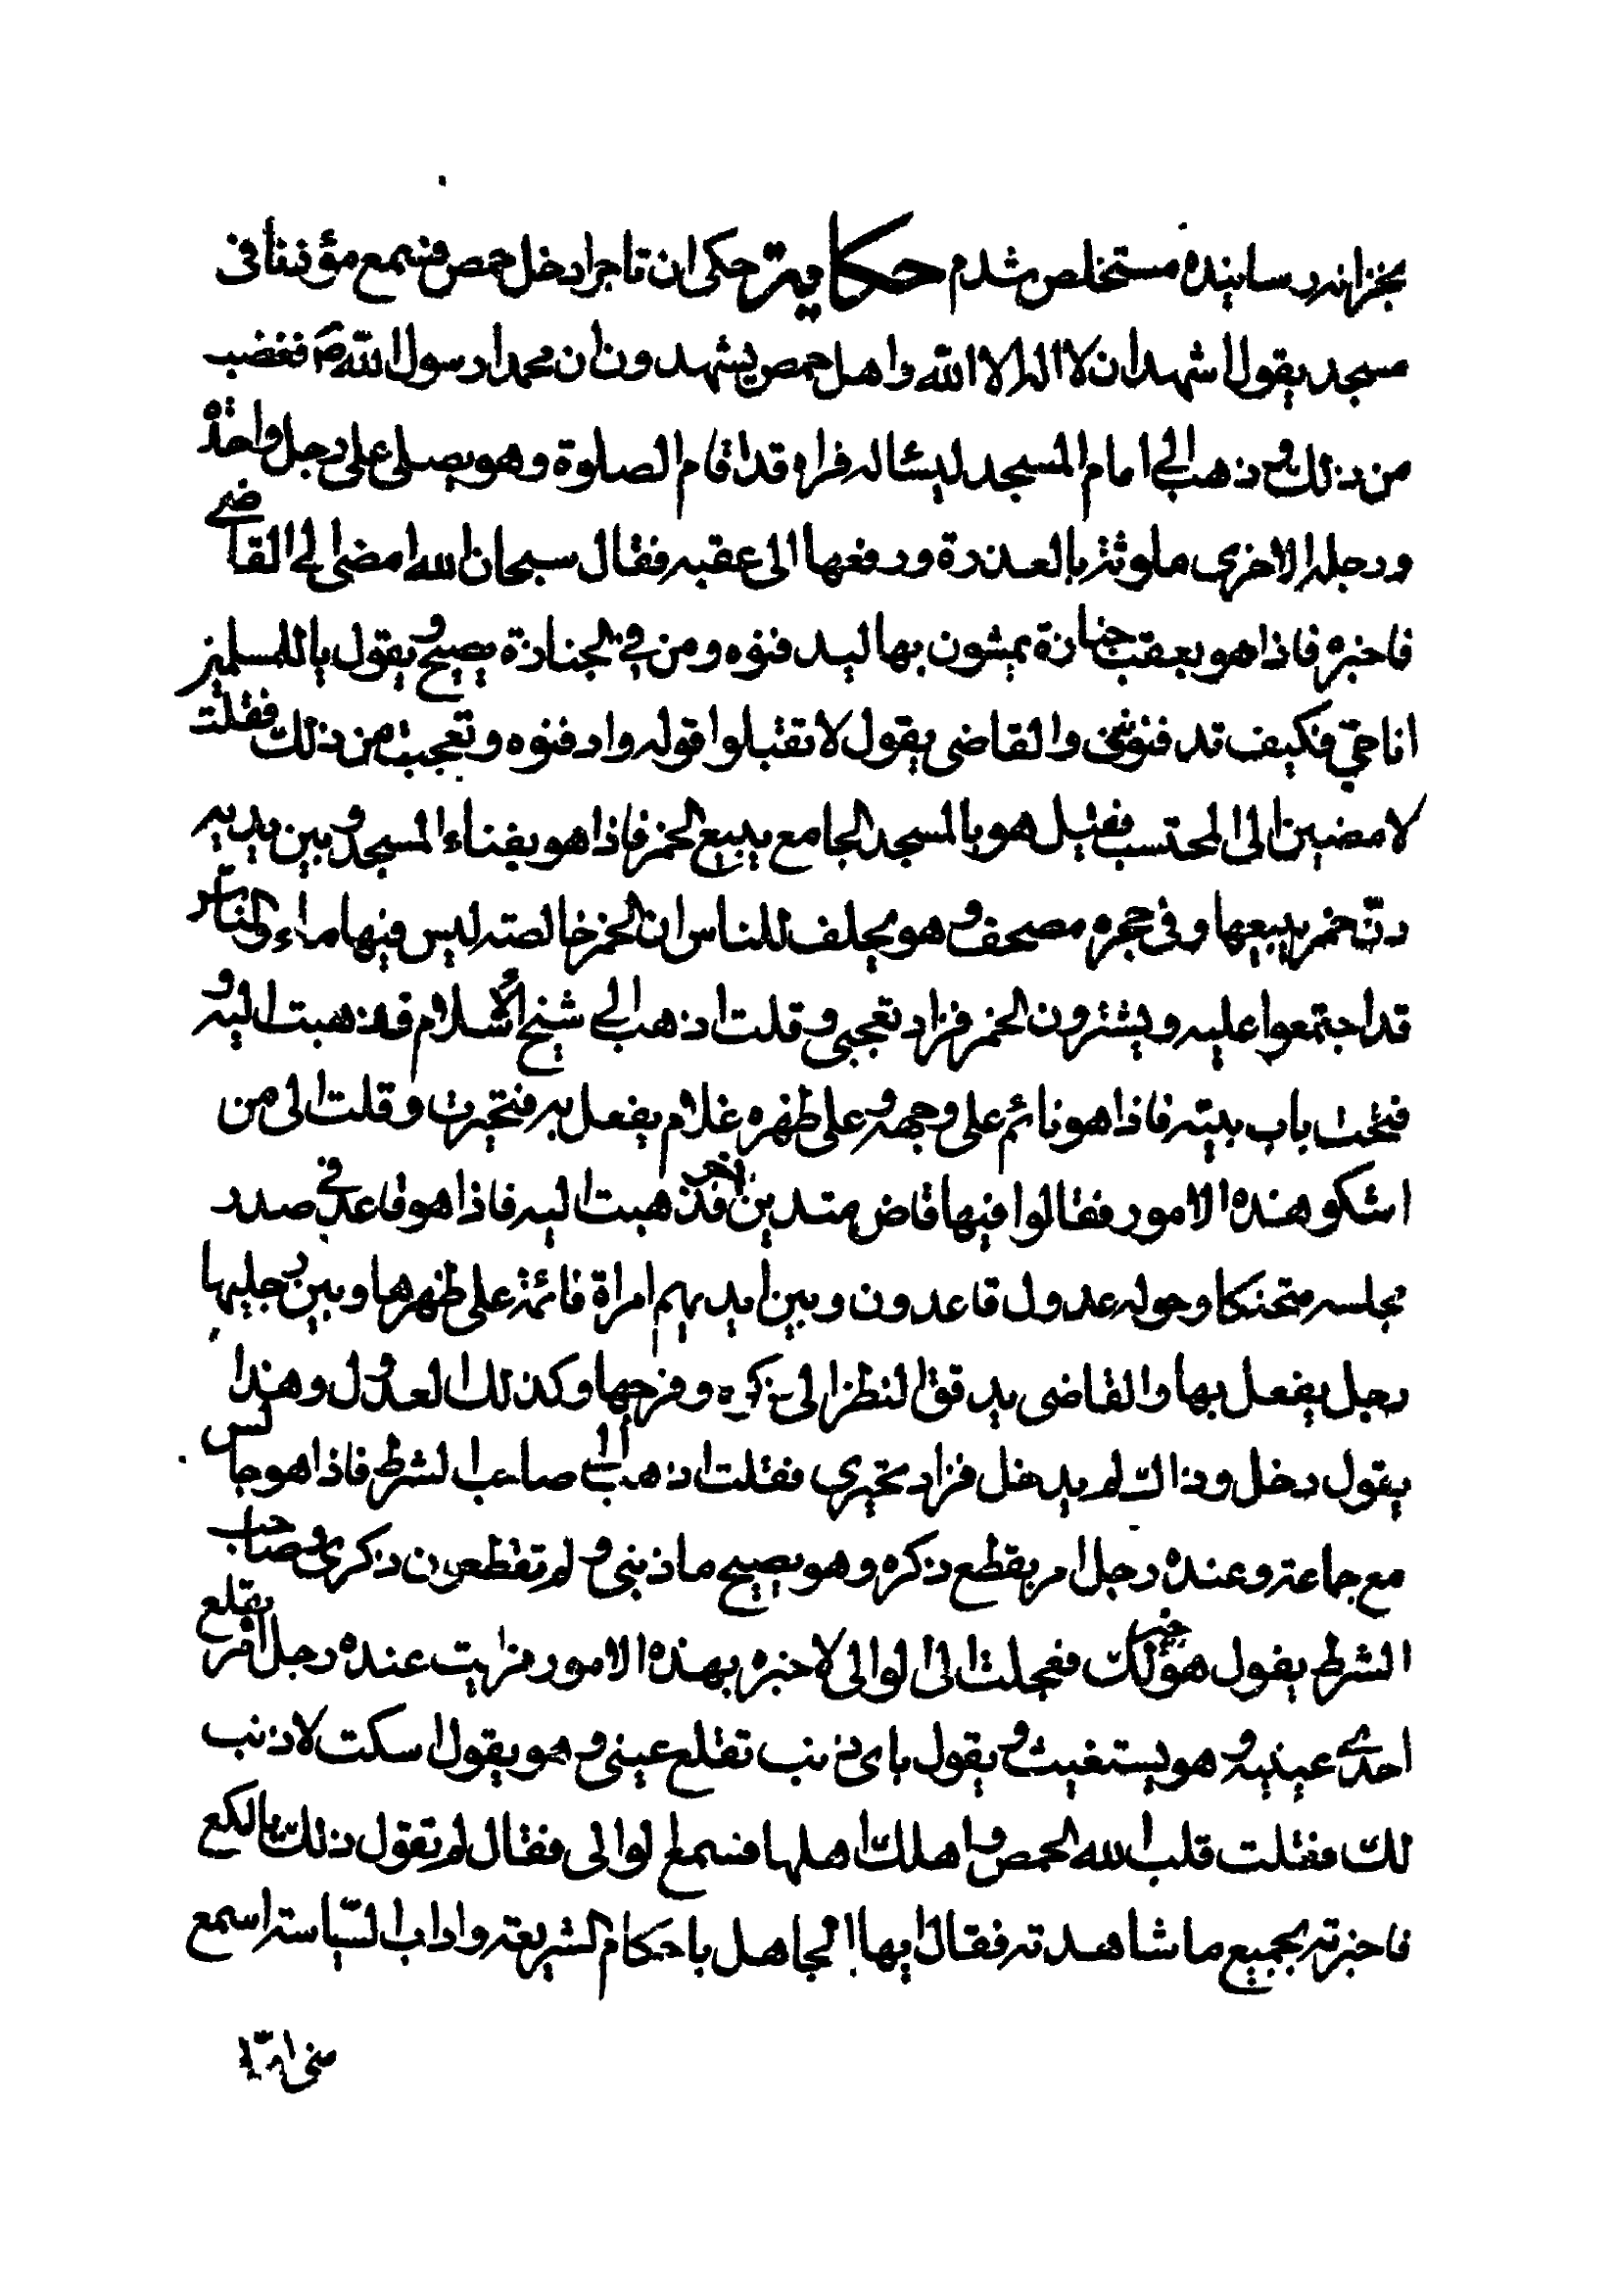 بخزانه رسانیده مستخلص شدم حكاية حكى ان تاجرا دخل حمص فسمع مؤذنا فى
مسجد يقول اشهد ان لا اله الا الله واهل حمص يشهدون ان محمدا رسول الله ص فغضب
من ذلك وذهب الى امام المسجد ليسئاله فراه قد اقام الصلوة وهو يصلى على رجل واحدة
ورجله الاخرى ملوثة بالعذرة ورفعها الى عقبه فقال سبحان الله امضى الى القاضى
فاخبره فاذا هو بعقب جنازة يمشون بها ليدفنوه ومن فى الجنازة يصيح ويقول يا للمسلمين
انا حى فكيف تدفنوننى والقاضى يقول لا تقبلوا قوله وادفنوه وتعجبت من ذلك فقلت
لامضين الى المحتسب فقيل هو بالمسجد الجامع يبيع الخمر فاذا هو بفناء المسجد وبين يديه
دن خمر يبيعها وفى حجره مصحف وهو يحلف للناس ان الخمر خالصته ليس فيها ماء والناس
قد اجتمعوا عليه ويشترون الخمر فزاد تعجبى وقلت اذهب الى شيخ الاسلام فذهبت اليه و
فتحت باب بيته فاذا هو نائم على وجهه وعلى ظهره غلام يفعل به فتحيرت وقلت الى من
اشكو هذه الامور فقالوا فيها قاض متدين اخر فذهبت اليه فاذا هو قاعد فى صدر
مجلسه متحنكا وحوله عدول قاعدون وبين ايديهم امراة قائمة على ظهرها وبين رجليها
رجل يفعل بها والقاضى يدقق النظر الى ذكره وفرجها وكذلك العدول وهذا
يقول دخل وذاك لم يدخل فزاد تحيرى فقلت اذهب الى صاحب الشرطه فاذا هو جالس
مع جماعة وعنده رجل امر بقطع ذكره وهو يصيح ما ذنبى ولم تقطعون ذكرى وصاحب
الشرطه يقول هو خير لك فعجلت الى الوالى لاخبره بهذه الامور فرايت عنده رجل امر بقلع
احدى عينيه وهو يستغيث ويقول باى ذنب تقلع عينى وهو يقول اسكت لا ذنب
لك فقلت قلب الله الحمص واهلك اهلها فسمع الوالى فقال لم تقول ذلك يا لكع
فاخبرته بجميع ما شاهدته فقال ايها الجاهل باحكام الشريعة واداب السياسته اسمع